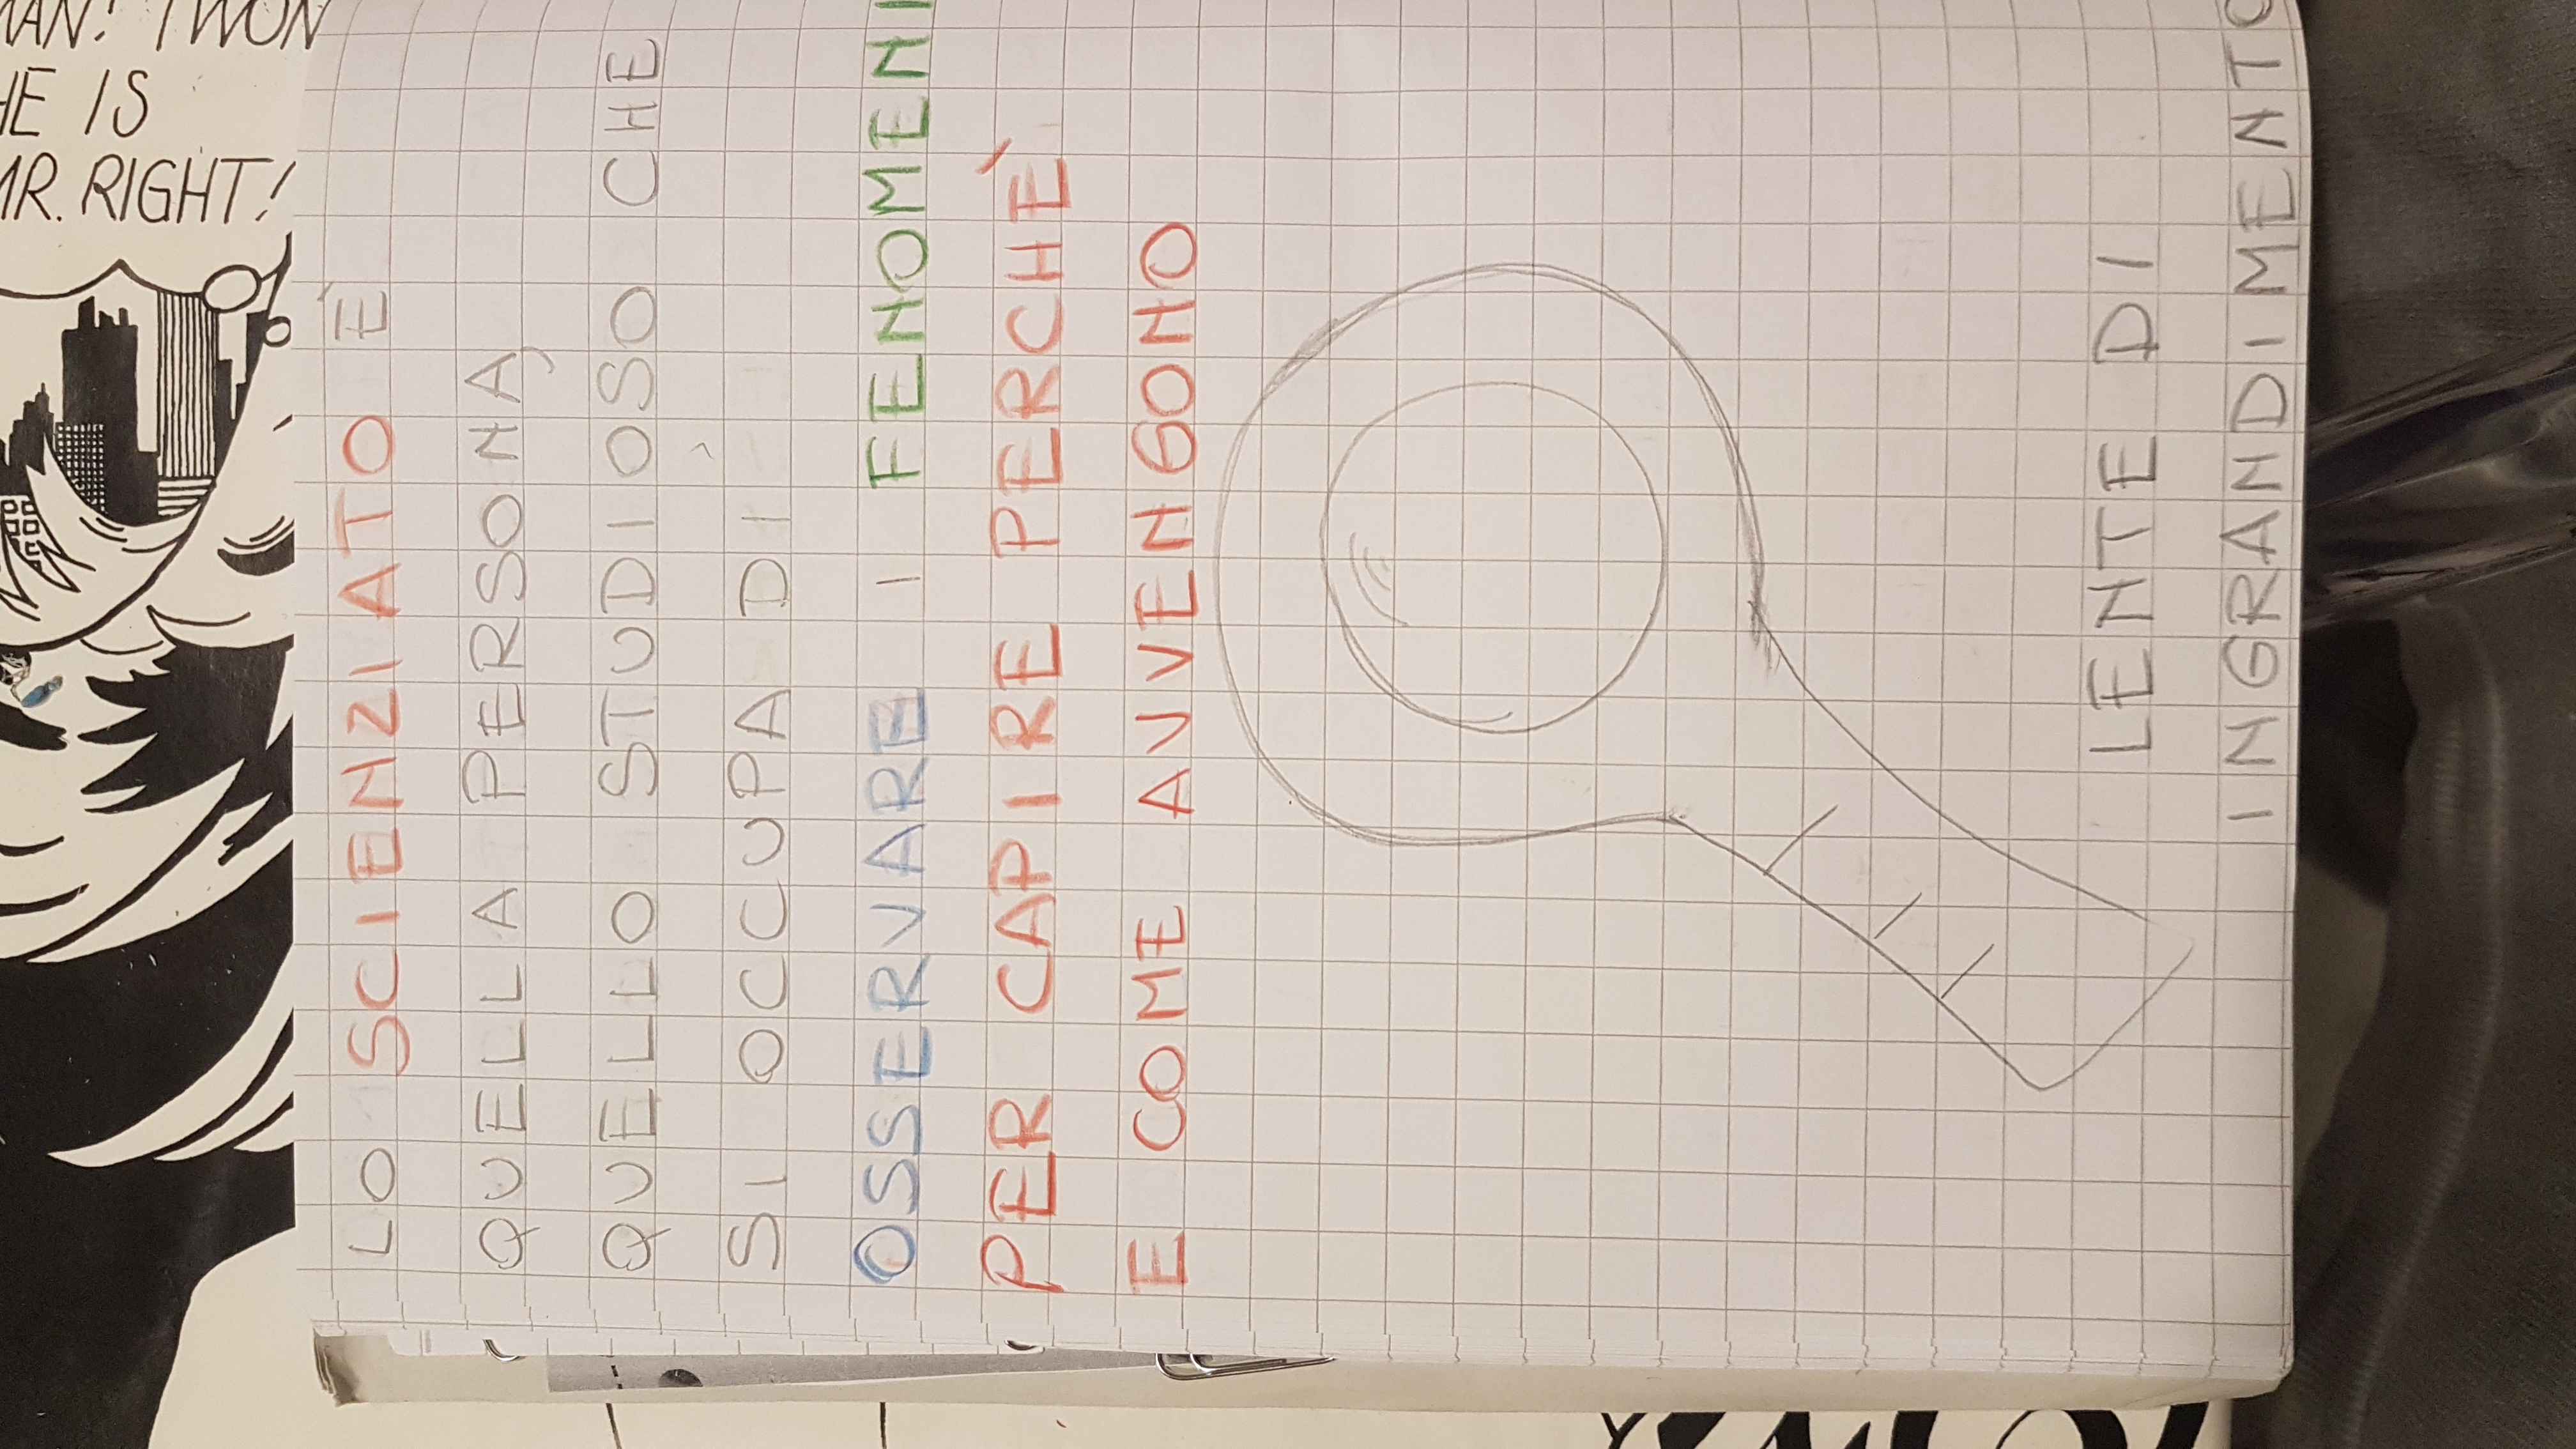 MAN! I WON
HE IS
MR. RIGHT!
LO SCIENZIATO È
QUELLA PERSONA,
QUELLO STUDIOSO CHE
SI OCCUPA DI
OSSERVARE I FENOMENI
PER CAPIRE PERCHÈ
E COME AVVENGONO
LENTE DI
INGRANDIMENTO